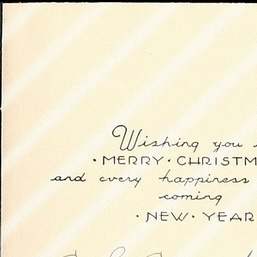 Wishing you
• MERRY • CHRISTM
and every happiness
coming
• NEW • YEAR